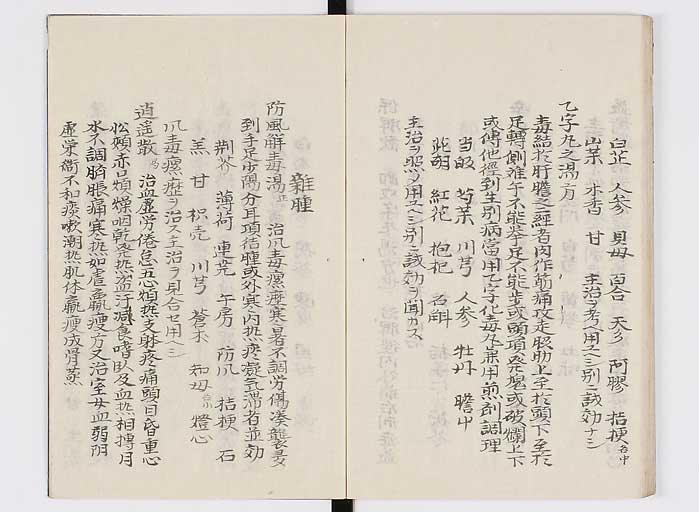 白芷 人参 貝母 百合 天夛 阿膠 桔梗 各中
山茱 木香 甘 主治ヲ考ヘ用ユヘシ別ニ誂効ナシ
乙字丸之湯方
毒結於肝膽之經者内作筋痛攻走股肋上至於頭下至於
足轉側難午不能挙足不能歩或頭項発瘡或破爛上下
或傳他經到生別病當用乙字化毒丸兼用煎剤調理
当皈 芍薬 川芎 人参 牡丹 膽中
紅花 枸杞 各
主治ヲ照ヘ用ユヘシ別ニ誂効ヲ聞カス
雜腫
防風解毒湯 正 治爪毒瘰癧寒暑不調労傷湊襲多
到手足少陽分耳項結腫或外寒内熱疼凝氣滞者並効
荆芥 薄荷 連翹 午房 防爪 桔梗 石
羔 甘 枳売 川芎 蒼木 知母 各 燈心
爪毒瘰癧ヲ治ス主治ヲ見合セ用ヘシ
逍遥散 局 治血虚労倦怠五心煩熱支躰疼痛頭目昏重心
忪頰赤口煩燥咽乾発熱盗汗減食嗜臥及血熱相搏月
水不調臍脹痛寒熱如虐羸瘦方又治室女血弱阴
虚栄衛不和痰嗽潮热肌体羸瘦成骨蒸